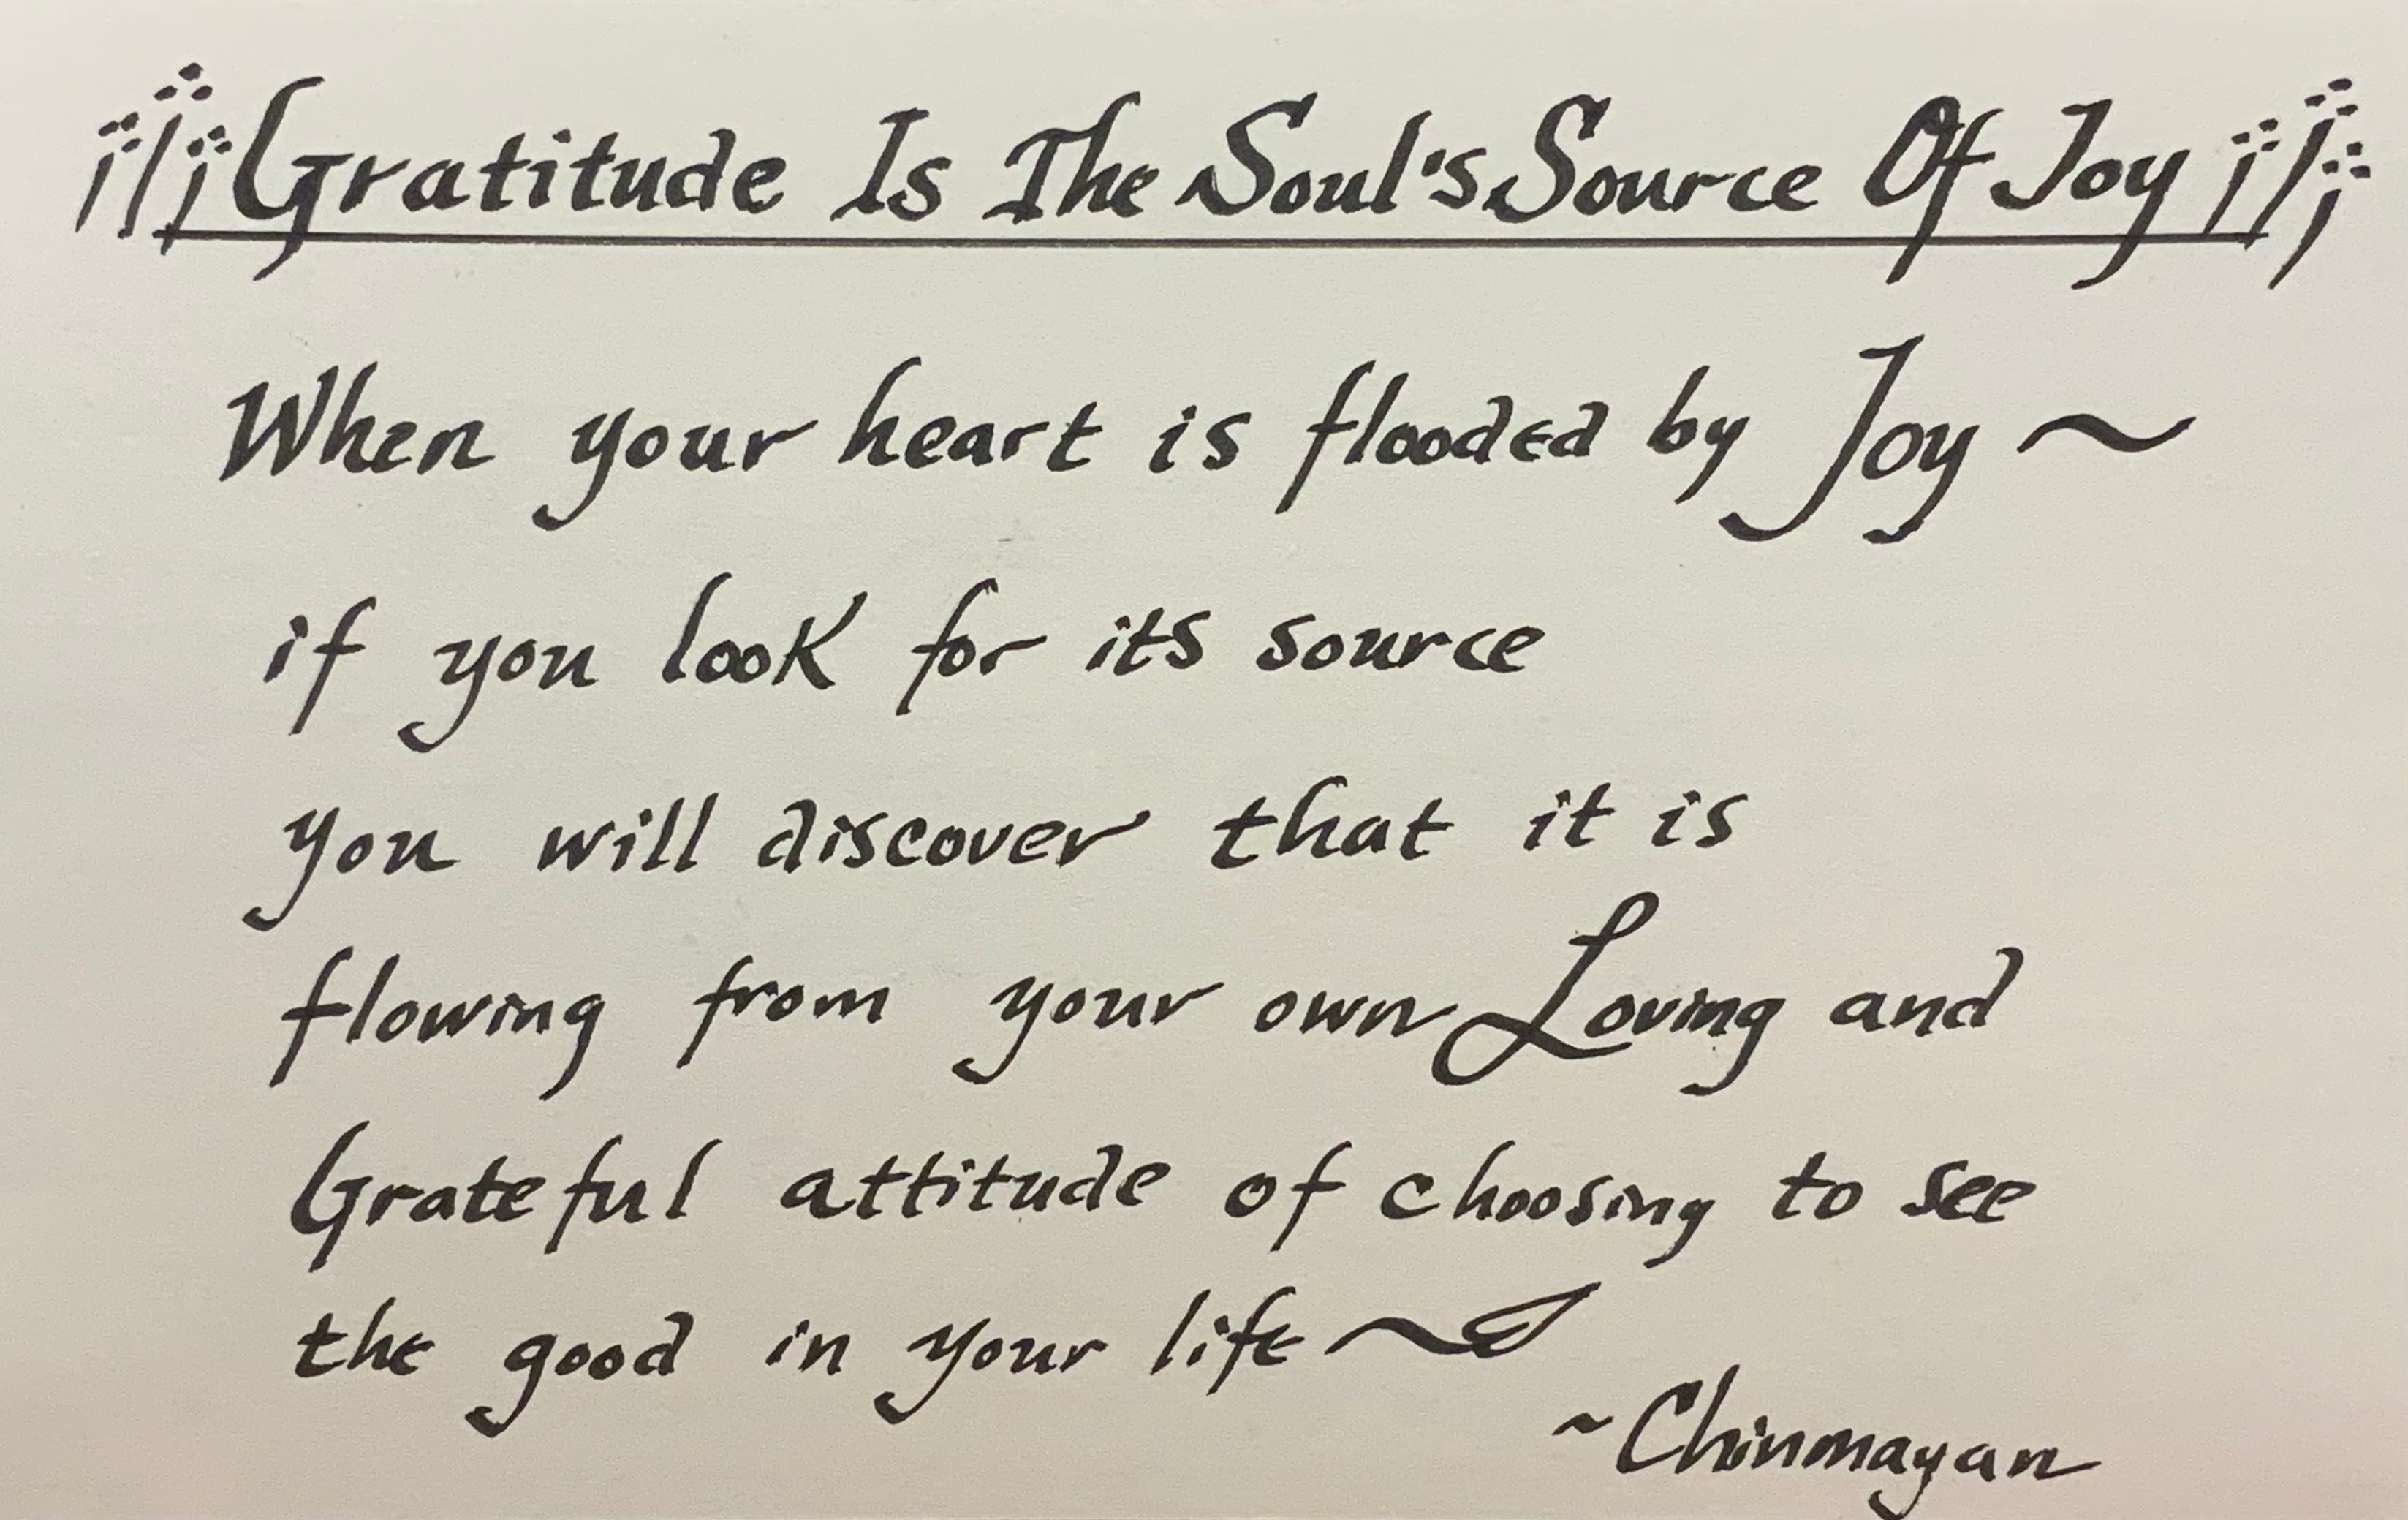 Gratitude Is The Soul's Source Of Joy
When your heart is flooded by Joy ~
if you look for its source
you will discover that it is
flowing from your own Loving and
Grateful attitude of choosing to see
the good in your life ~
~Chinmayan